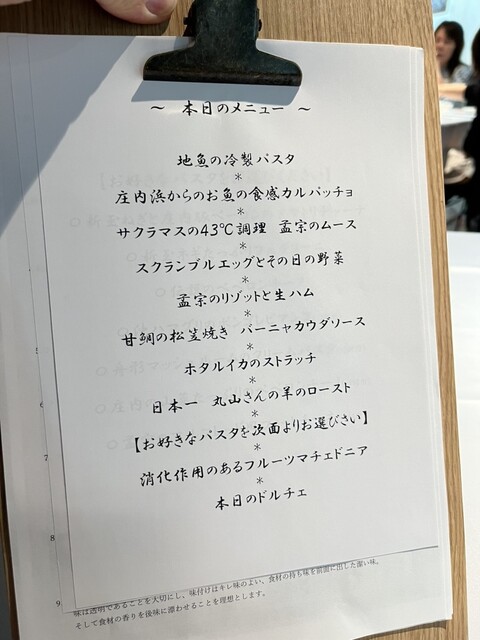 ～ 本日のメニュー ～
地魚の冷製パスタ
*
庄内浜からのお魚の食感カルパッチョ
*
サクラマスの43℃調理 孟宗のムース
*
スクランブルエッグとその日の野菜
*
孟宗のリゾットと生ハム
*
甘鯛の松笠焼き バーニャカウダソース
*
ホタルイカのストラッチ
*
日本一 丸山さんの羊のロースト
*
【お好きなパスタを次面よりお選びさい】
*
消化作用のあるフルーツマチェドニア
*
本日のドルチェ
6
7
8
9
味は透明であることを大切にし、味付けはキレ味のよい、食材の持ち味を前面に出した潔い味。
そして食材の香りを後味に漂わせることを理想とします。